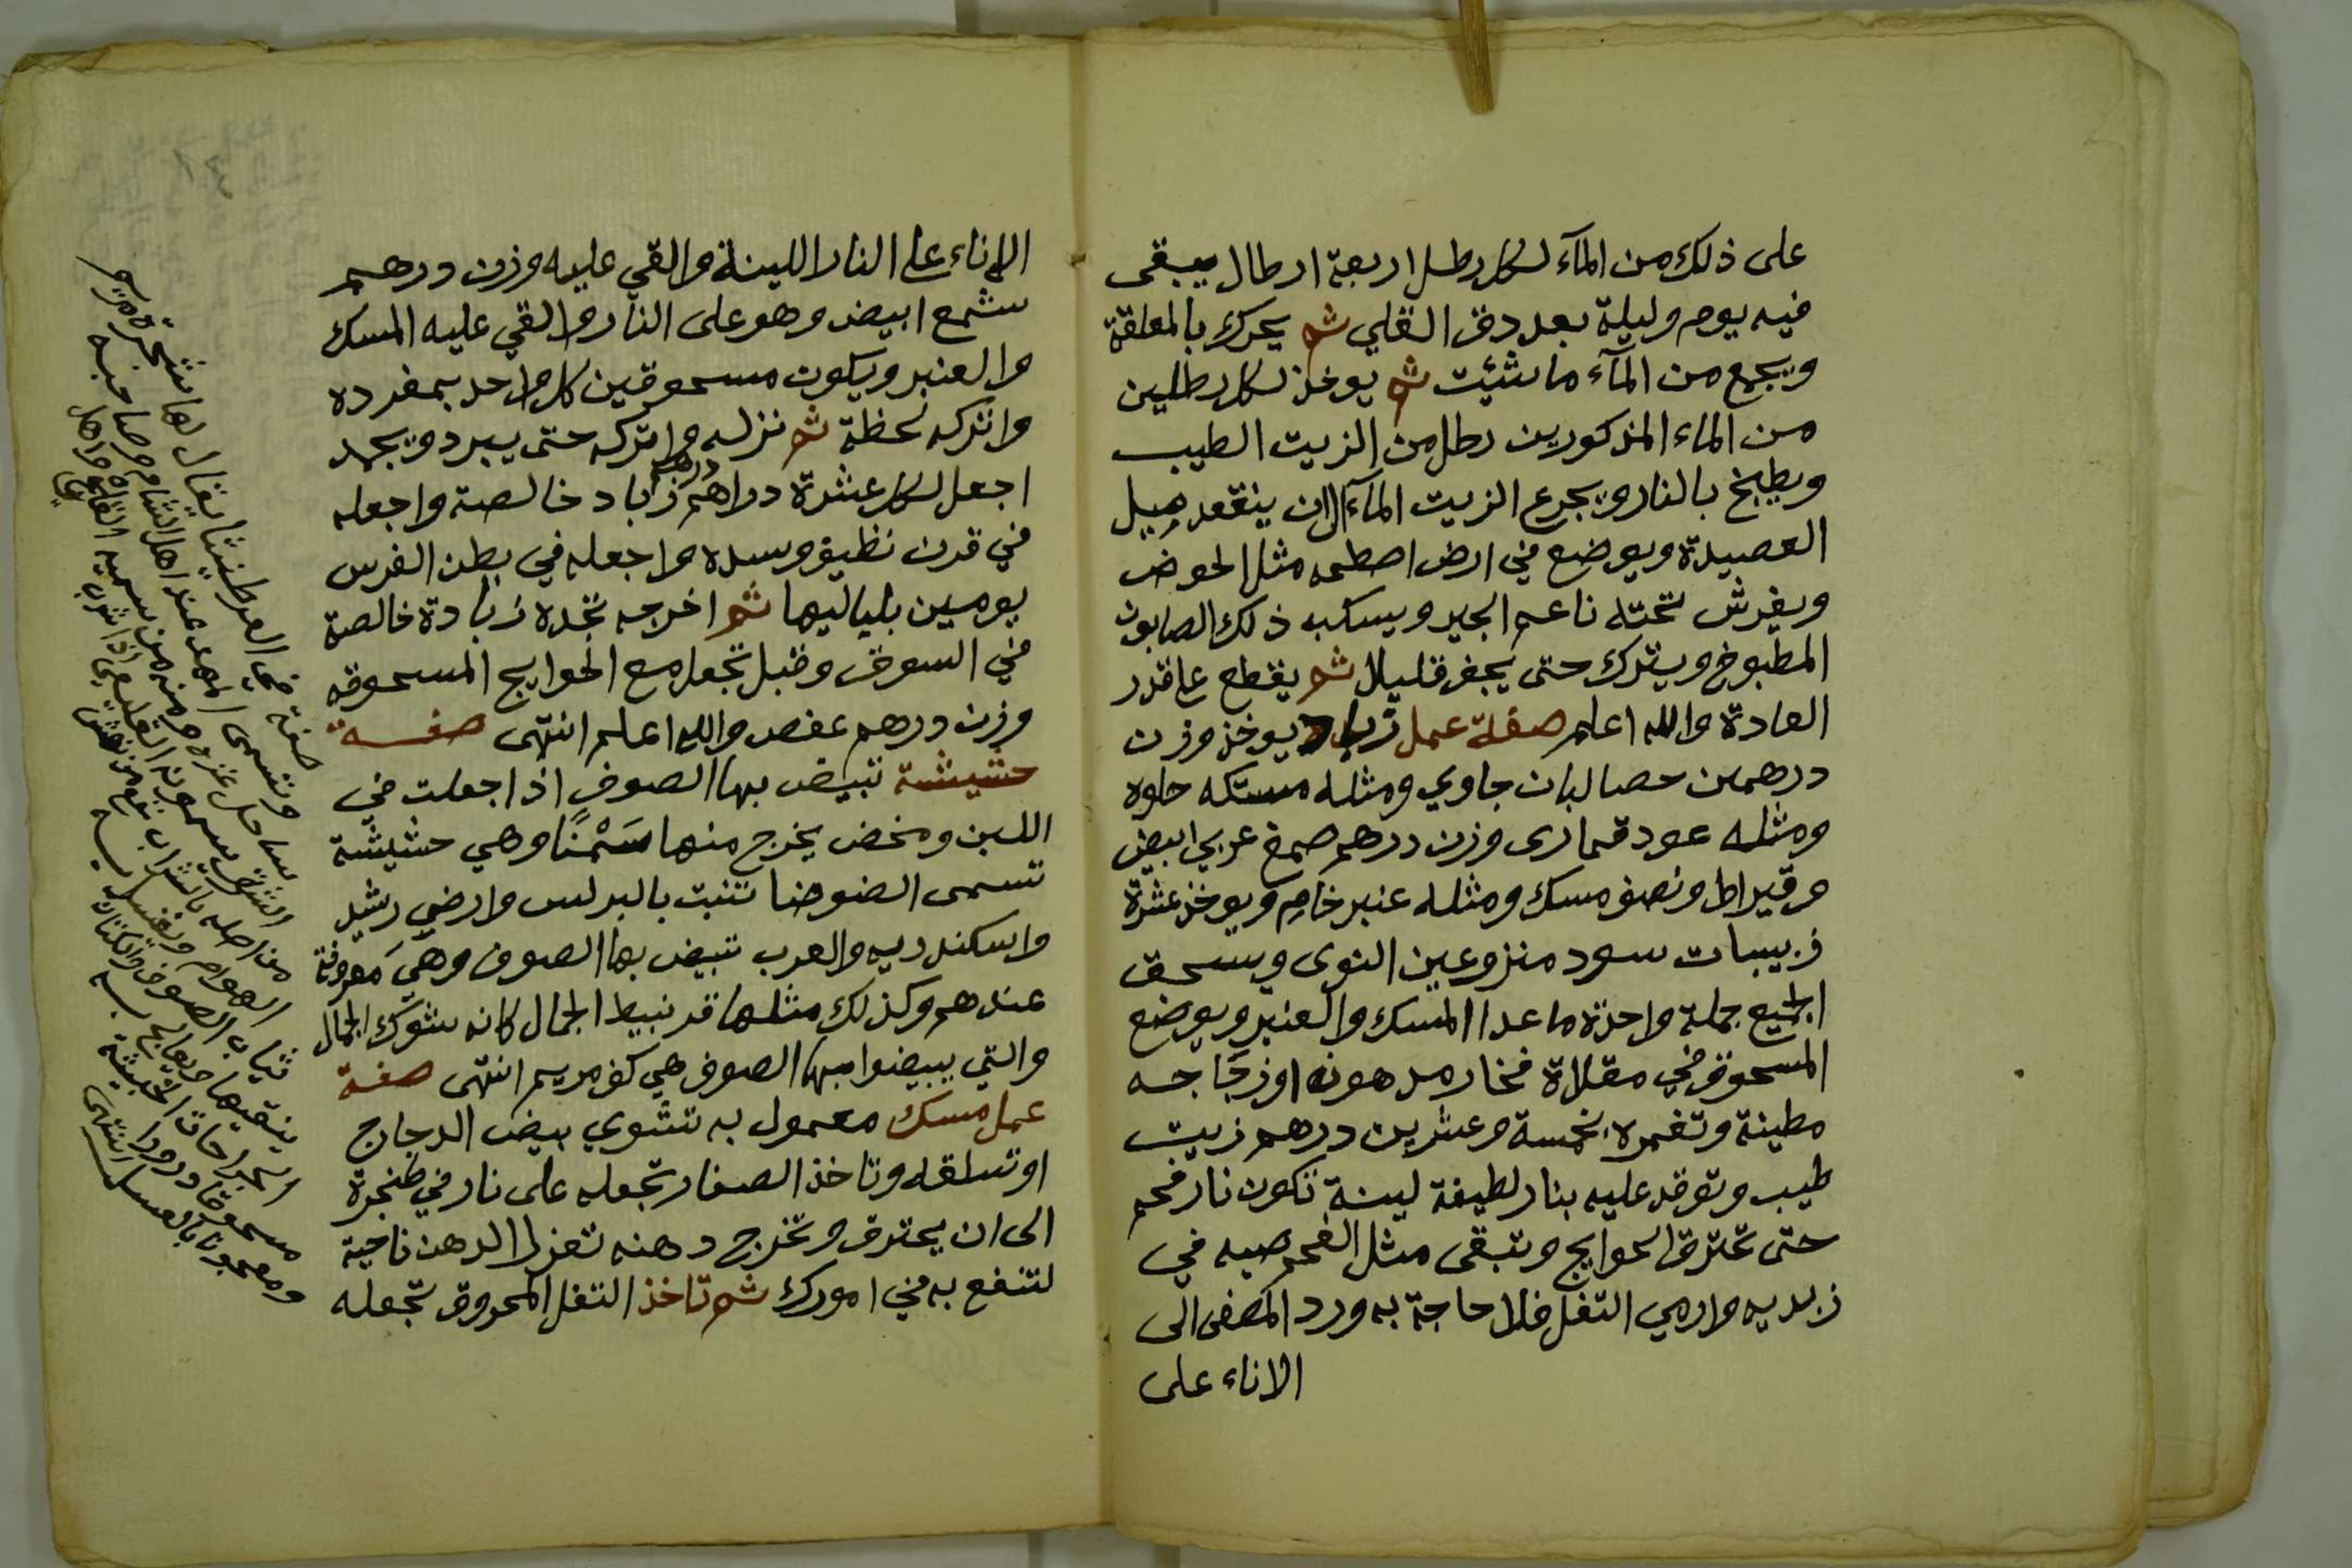 على ذلك من المآء لكل رطل اربعة ارطال يبقى
فيه يوم وليلة بعد دق القلي ثم يحرك بالمعلقة
ويجمع من المآء ما شئت ثم يوخذ لكل رطلين
من الماء المذكورين رطل من الزيت الطيب
ويطبخ بالنار ويجرع الزيت المآء الى ان ينقعد مثل
العصيدة ويوضع في ارض مثل الحوض
ويفرش تحته ناعم الجير ويسكب ذلك الصابون
المطبوخ ويترك حتى يجف قليلا ثم يقطع على قدر
العادة والله اعلم صفة عمل زباد يوخذ وزن
درهمين حصا لبان جاوي ومثله مستكه حلوه
ومثله عود قمارى وزن درهم صمغ عربي ابيض
وقيراط ونصف مسك ومثله عنبر خام ويوخذ عشرة
زبيبات سود منزوعين النوى ويسحق
الجميع جملة واحدة ما عدا المسك والعنبر ويوضع
المسحوق في مقلاة فخار مدهونه او زجاجه
مطينة وتغمره بخمسة وعشرين درهم زيت
طيب وتوقد عليه بنار لطيفة لينة تكون نار فحم
حتى تحترق الحوايج وتبقى مثل الفحم صبه في
زبديه وارمي التفل فلا حاجة به ورد المصفى الى
الاناء على
الاناء على النار اللينة والقي عليه وزن درهم
شمع ابيض وهو على النار والقي عليه المسك
والعنبر ويكون مسحوقين كل واحد بمفرده
واتركه لحظة ثم نزله واتركه حتى يبرد ويجمد
اجعل لكل عشرة دراهم درهم زباد خالصة واجعله
في قرن نظيف وسده واجعله في بطن الفرس
يومين بلياليها ثم اخرجه تجده زبادة خالصة
في السوق وقبل تجعل مع الحوايج المسحوقه
وزن درهم عفص والله اعلم انتهى صفة
حشيشة تبيض بها الصوف اذا جعلت في
اللبن ومخض يخرج منها سَمْنًا وهي حشيشة
تسمى الضوضا تنبت بالبرلس وارضي رشيد
واسكندريه والعرب تبيض بها الصوف وهي معروفة
عندهم وكذلك مثلها قرنبيط الجمال كانه شوك الجمال
والتي يبيضوا بها الصوف هي كف مريم انتهى صفة
عمل مسك معمول به تشوي بيض الدجاج
او تسلقه وتاخذ الصفار تجعله على نار في طنجرة
الى ان يحترق وتخرج دهنه تعزل الدهن ناحية
لتنفع به في امورك ثم تاخذ التفل المحروق تجعله
صفة في العرطنيثا يقال لها شجرة مريم
وتسمى عند اهل الشام
ساحل غزه ومنه من يسميه
يسمونه
من اصله
ثياب الصوف
ينقيها
الجراحات الخبيثة
مسحوقا ودرورا
ومعجونا بالعسل انتهى